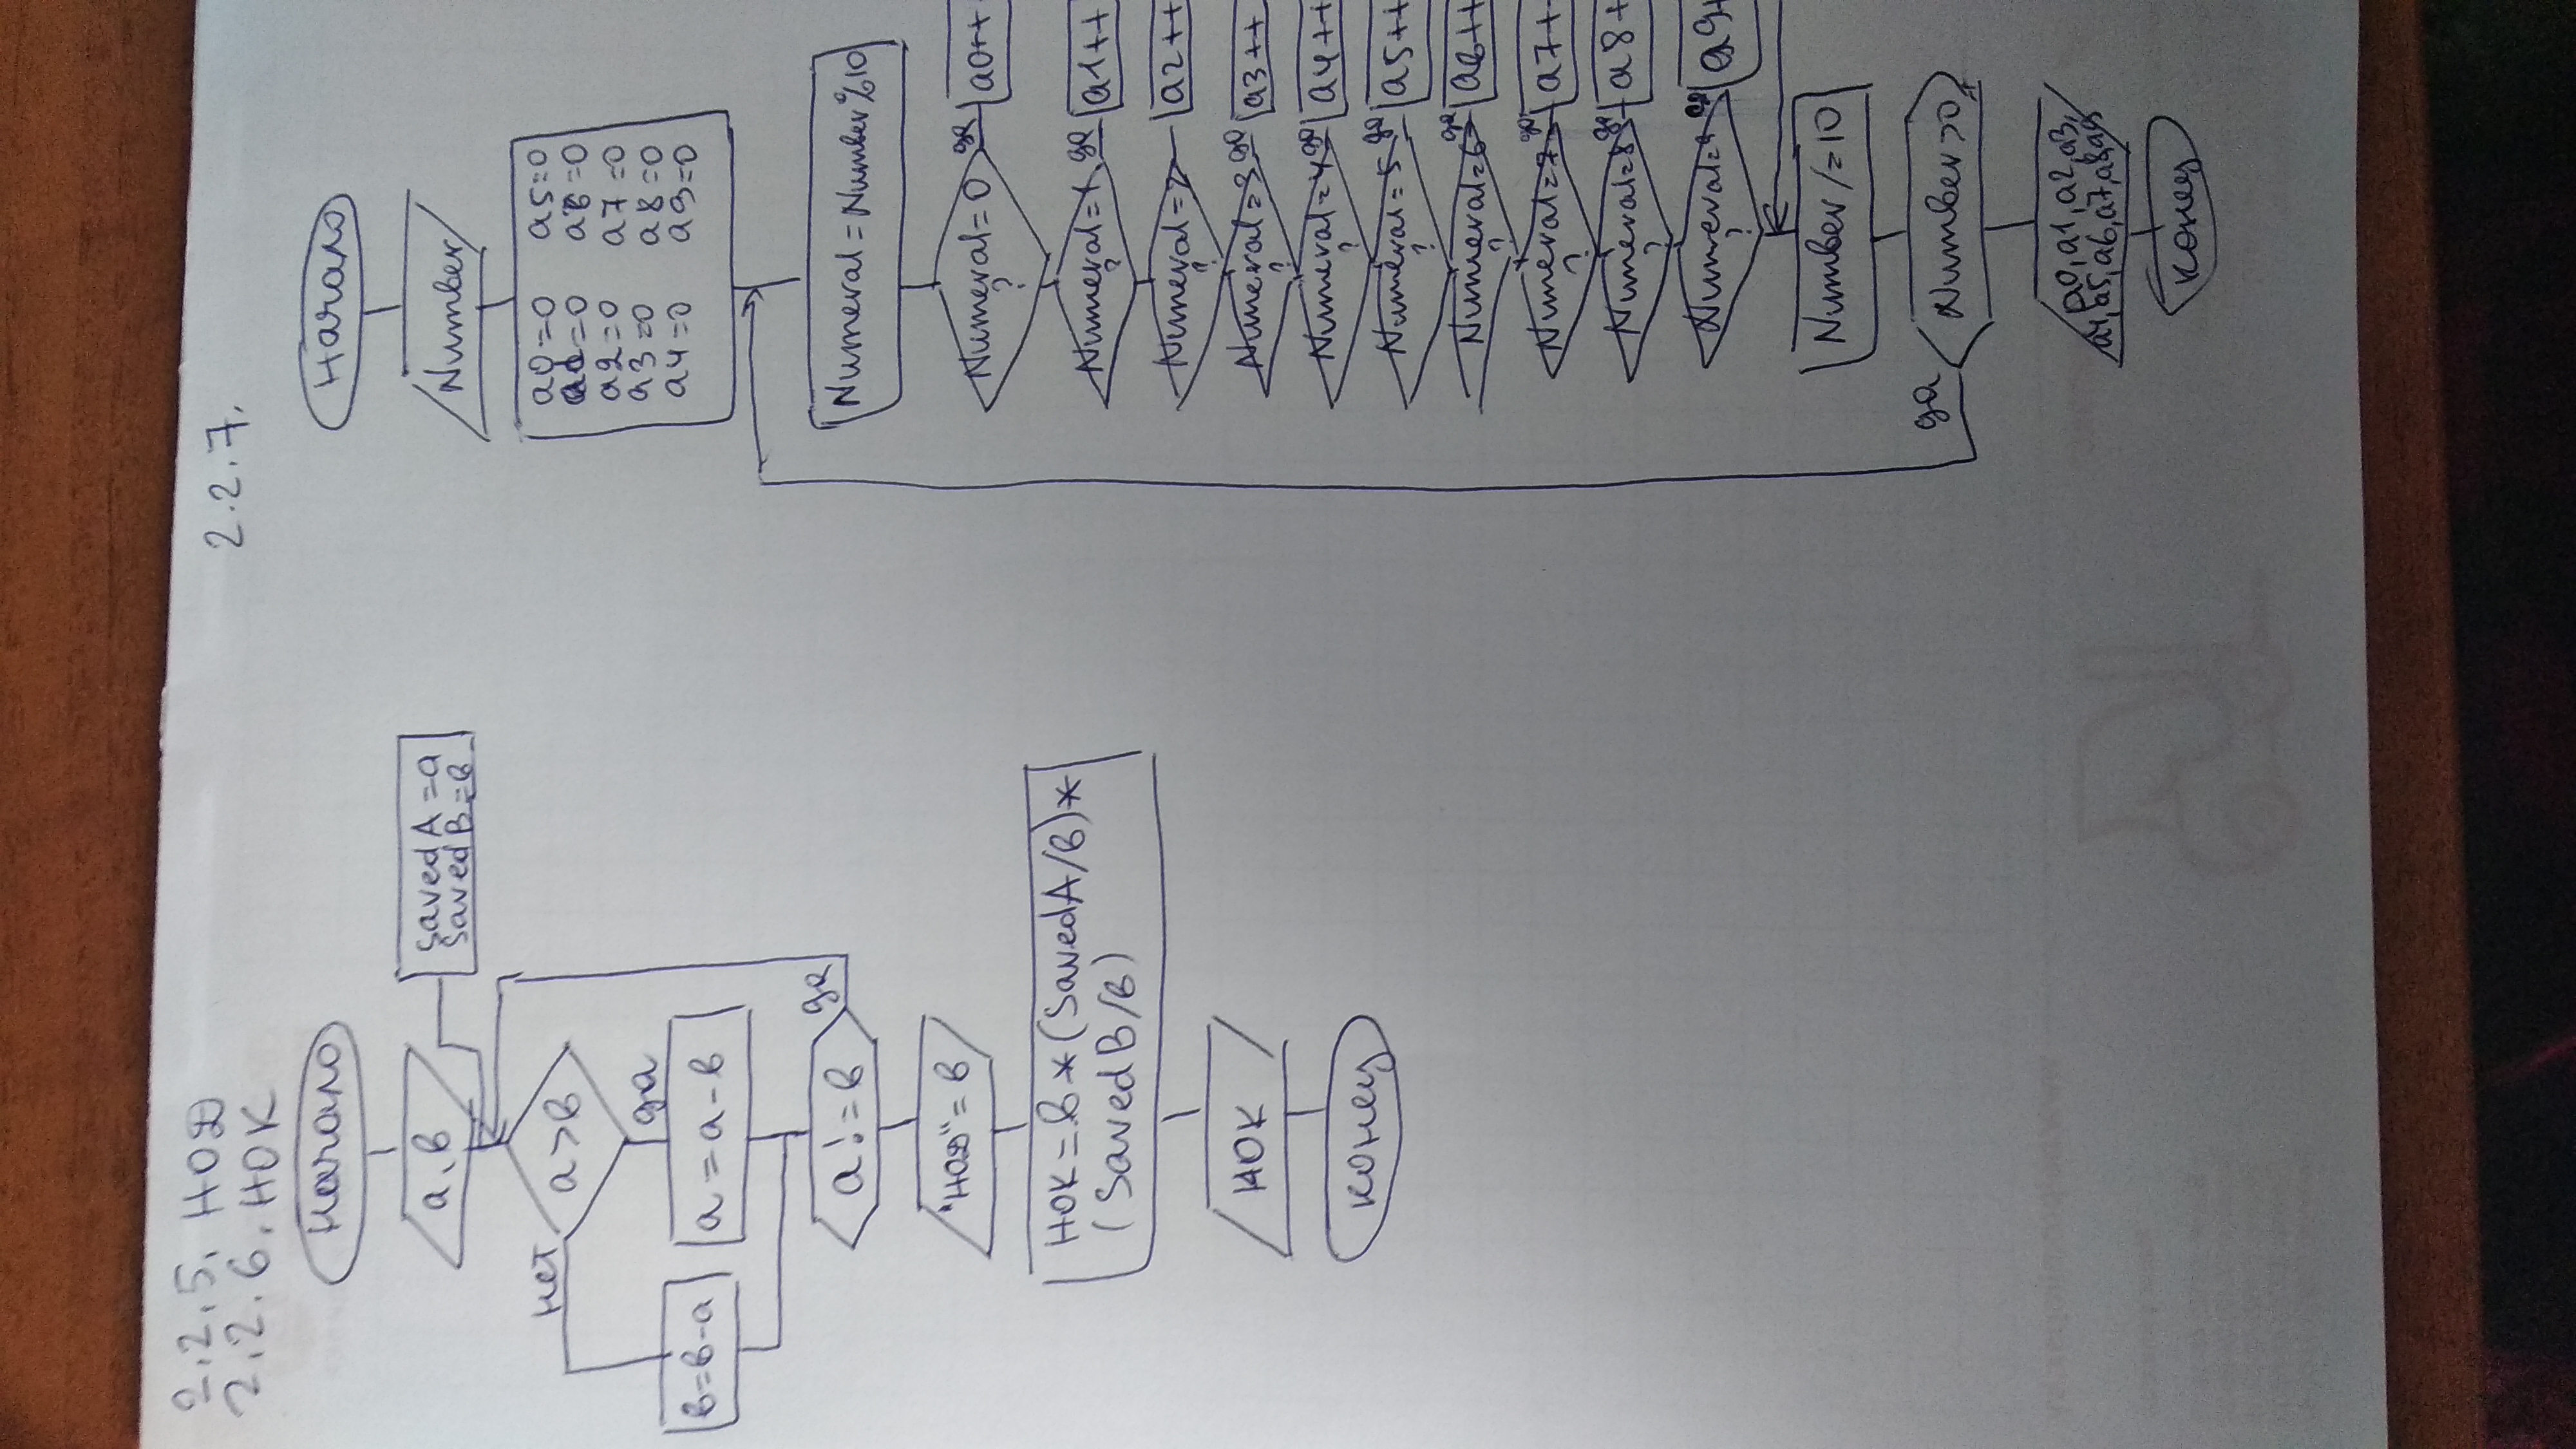 2.2.5. НОД
2.2.6. НОК
Начало
a, b
savedA = a
savedB = b
a > b
нет
да
b = b - a
a = a - b
a != b
да
"НОД" = b
НОК = b * (savedA/b) *
(savedB/b)
НОК
конец
2.2.7.
Начало
Number
a0=0 a5=0
a1=0 a6=0
a2=0 a7=0
a3=0 a8=0
a4=0 a9=0
Numeral = Number % 10
Numeral = 0 ? да a0++
Numeral = 1 ? да a1++
Numeral = 2 ? a2++
Numeral = 3 ? да a3++
Numeral = 4 ? да a4++
Numeral = 5 ? да a5++
Numeral = 6 ? да a6++
Numeral = 7 ? да a7++
Numeral = 8 ? да a8+
Numeral = 9 ? да a9+
Number /= 10
да Number > 0
a0, a1, a2, a3,
a4, a5, a6, a7, a8, a9
конец